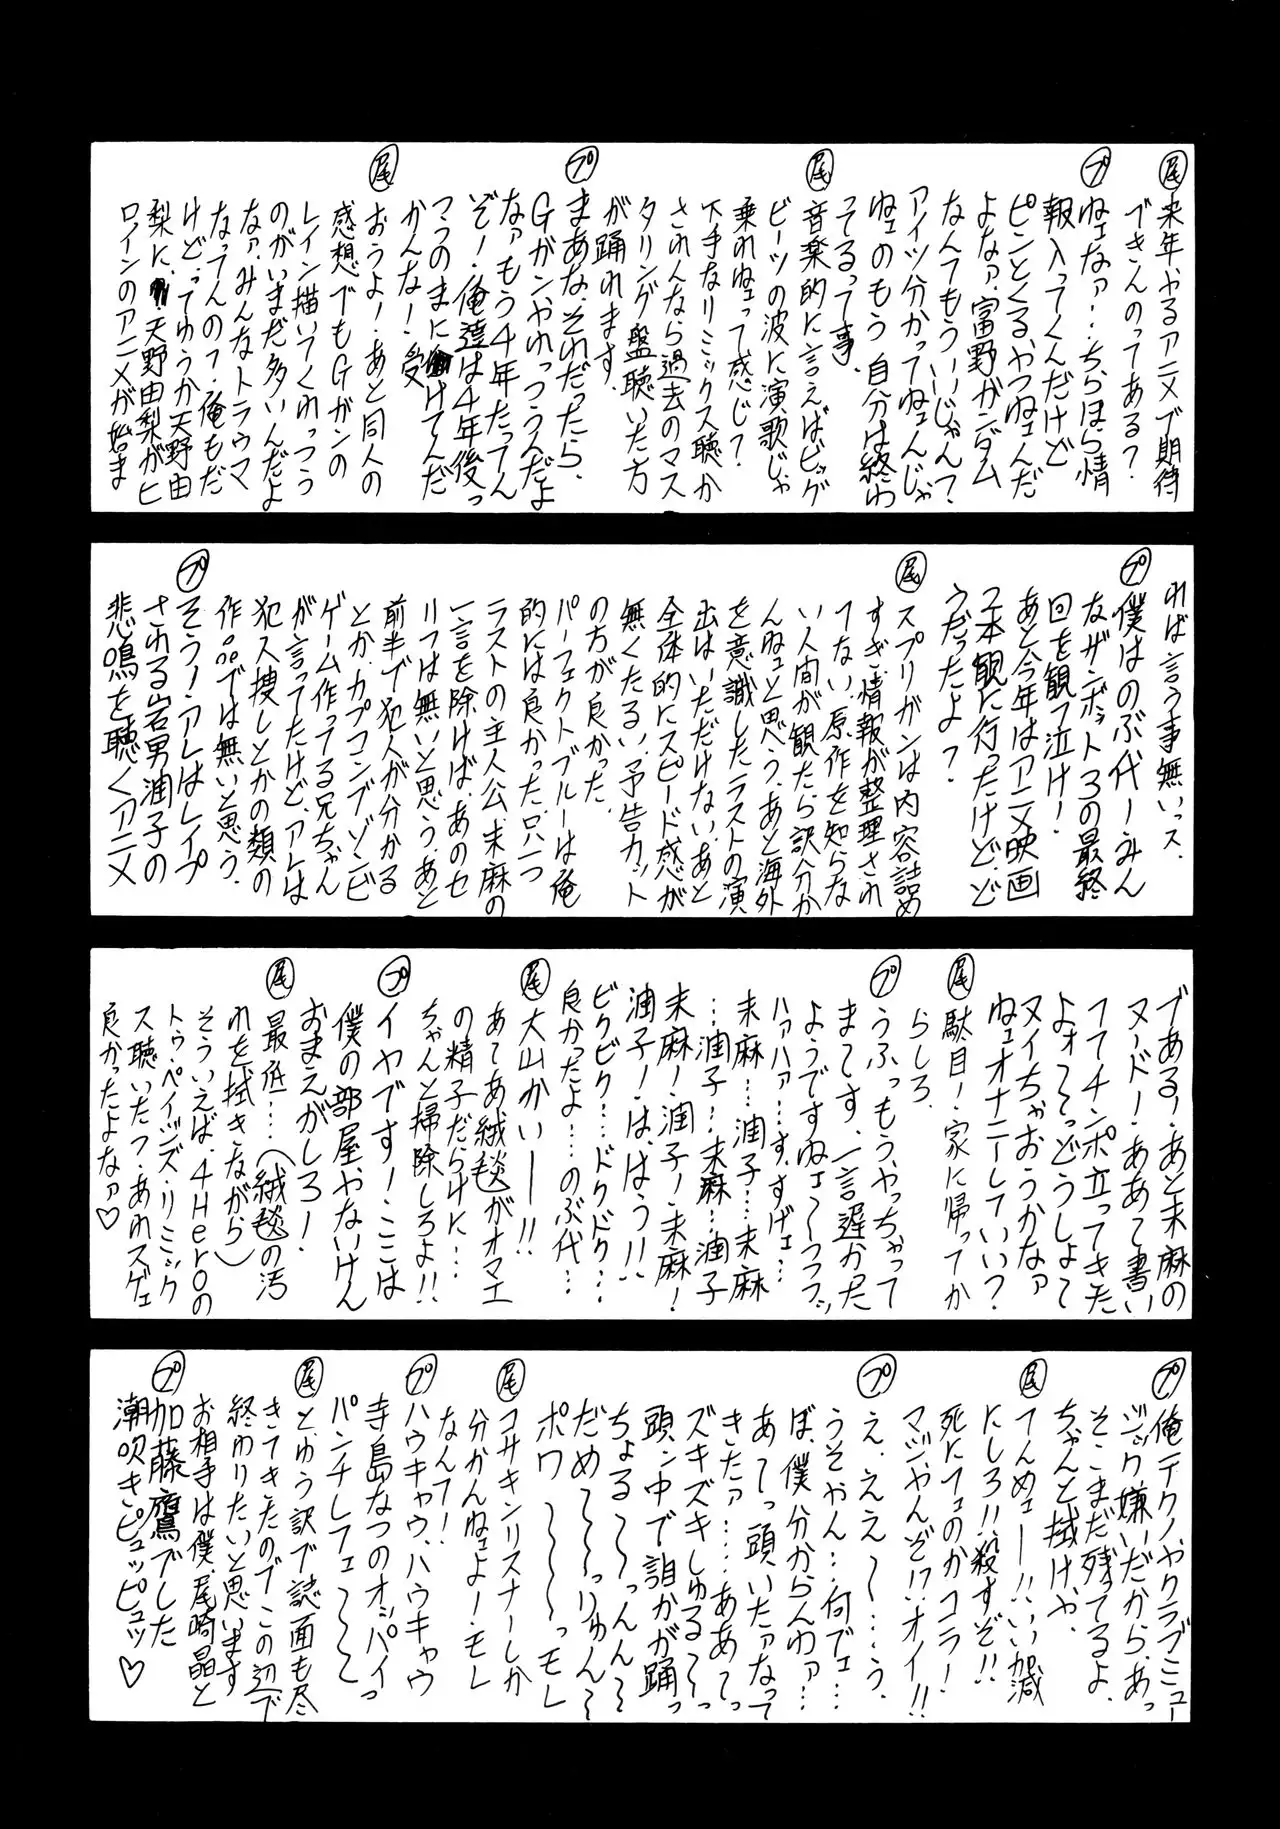 尾 来年やるアニメで期待
できんのってある?
プ ねェなァ…ちらほら情
報入ってくんだけど
ピンとくるやつねェんだ
よなァ、富野がンダム
なんてもういいじゃんて?
アイツ分かってねェんじゃ
ねェのもう自分は終わ
ってるって事、
尾 音楽的に言えばビッグ
ビーツの波に演歌じゃ
乗れねェって感じ?
下手なリミックス聴か
されんなら過去のマス
タリング盤聴いた方
が踊れます。
プ まあな、それだったら、
Gガンやれっつうんだよ
なァもう4年たってん
ぞ!俺達は4年後っ
つうのまに受けてんだ
かんな!
尾 おうよ!あと同人の
感想でもGガンの
レイン描いてくれっつう
のがいまだ多いんだよ
なァ、みんなトラウマ
なってんの?俺もだ
けど、ってゆうか天野由
梨に、天野由梨がヒ
ロインのアニメが始ま
れば言う事無いっス、
プ 僕はのぶ代ーみん
なザンボット3の最終
回を観て泣け!
あと今年はアニメ映画
2本観に行ったけど、ど
うだったよ?
尾 スプリガンは内容詰め
すぎ、情報が整理され
てない、原作を知らな
い人間が観たら訳分か
んねェと思う、あと海外
を意識したラストの演
出はいただけない、あと
全体的にスピード感が
無くたるい、予告カット
の方が良かった、
パーフェクトブルーは俺
的には良かった、只一つ
ラストの主人公、未麻の
一言を除けば、あのセ
リフは無いと思う、あと
前半で犯人が分かる
とか、カプコンでゾンビ
ゲーム作ってる兄ちゃん
が言ってたけど、アレは
犯人捜しとかの類の
作品では無いと思う、
プ そう!アレはレイプ
される岩男潤子の
悲鳴を聴くアニメ
である!あと未麻の
ヌード!ああて書い
ててチンポ立ってきた
よォ~~っどうしよて
ヌイちゃおうかなァ
ねェオナニーしていい?
尾 駄目!家に帰ってか
らしろ、
プ うふっもうやっちゃって
まてす、一言遅かった
ようですねェ~~フフフッ
ハァハァ…す、すげェ…
未麻…潤子…未麻
…潤子…未麻…潤子
未麻!潤子!未麻!
潤子!は、はう!!
ビクビク…、ドクドク…
良かったよ……のぶ代…
尾 大山かいー!!
あてあ絨毯がオマエ
の精子だらけに…
ちゃんと掃除しろよ!!
プ イヤです!ここは
僕の部屋やないけん
おまえがしろ!
尾 最低…(絨毯の汚
れを拭きながら)
そういえば、4HerOの
トゥ・ペイジズ・リミック
ス聴いた?あれスゲェ
良かったよなァ♡
プ 俺テクノやクラブミュー
ジック嫌いだから、あっ
そこまだ残ってるよ、
ちゃんと拭けや、
尾 てんめェー!!いい加減
にしろ!!殺すぞ!!
死にてェのかコラ!
マジやんぞ!?オイ!!
プ え、ええ~……う、
うそやん…何でェ…
ぼ、僕分からんわァ…
あ~っ頭いたァなって
きたァ……ああ~っ
ズキズキしゅる~~っ
頭ン中で誰かが踊っ
ちょる~~っんん~~
だめ~~~っりゅん~~
ポワ~~~~っモレ
尾 コサキンリスナーしか
分かんねェよー!モレ
なんて!
プ ハウキャウ、ハウキャウ
寺島なつのオッパイっ
パンチしてェ~~~
尾 と、ゆう訳で誌面も尽
きてきたのでこの辺で
終わりたいと思います
お相手は僕、尾崎晶と
プ 加藤鷹でした
潮吹きピュッピュッ♡